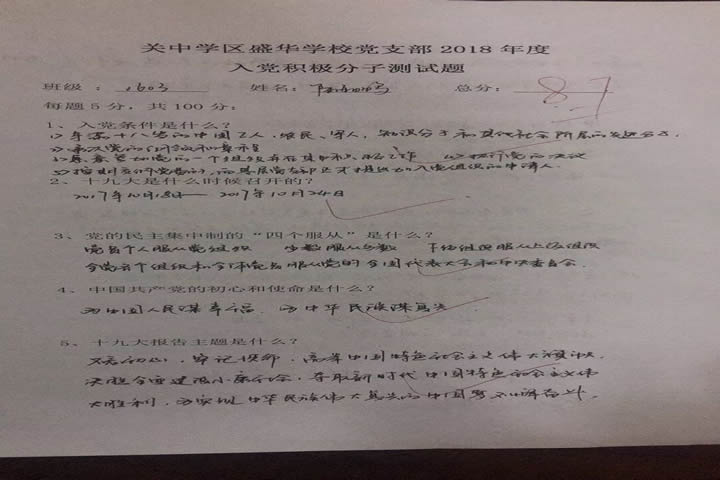 关中学区盛华学校党支部 2018 年度
入党积极分子测试题
班级 : 1603 姓名: 总分: 87
每题 5 分, 共 100 分:
1、入党条件是什么?
1) 年满十八岁的中国工人、农民、军人、知识分子和其他社会阶层的先进分子.
2) 承认党的纲领和章程
3) 愿意参加党的一个组织并在其中积极工作 4) 执行党的决议
2、十九大是什么时候召开的?
2017年10月18日—— 2017年10月24日
3、党的民主集中制的“四个服从”是什么?
党员个人服从党组织 少数服从多数 下级组织服从上级组织
全党各个组织和全体党员服从党的全国代表大会和中央委员会.
4、中国共产党的初心和使命是什么?
为中国人民谋幸福. 为中华民族谋复兴
5、十九大报告主题是什么?
不忘初心, 牢记使命, 高举中国特色社会主义伟大旗帜.
决胜全面建成小康社会, 夺取新时代中国特色社会主义伟
大胜利, 为实现中华民族伟大复兴的中国梦不懈奋斗.